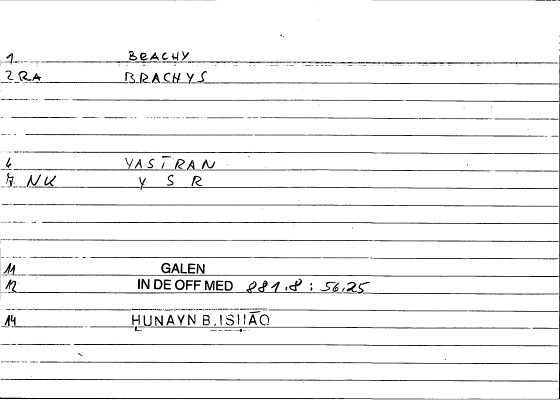 1 BRACHY
2 RA BRACHYS
6 YASTRAN
7 NK Y S R
11 GALEN
12 IN DE OFF MED 881.8 : 56.25
14 ḤUNAYN B. ISḤĀQ